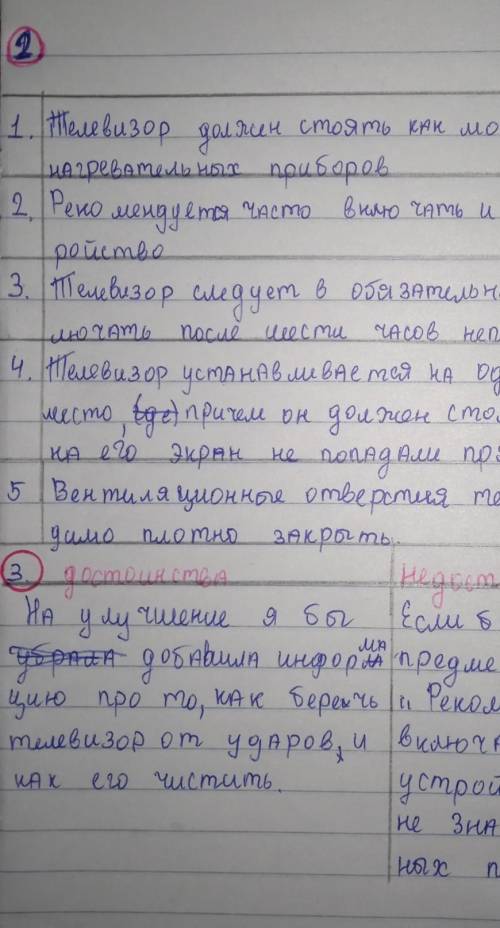 2
1. Телевизор должен стоять как мо
нагревательных приборов
2. Рекомендуется часто включать и
ройство
3. Телевизор следует в обязательн
лючать после шести часов неп
4. Телевизор устанавливается на од
место, (где) причем он должен сто
на его экран не попадали пр
5 Вентиляционные отверстия те
димо плотно закрыть.
3. достоинства Недост
На улучшение я бы Если б
убрала добавила информа предме
цию про то, как беречь и Реком
телевизор от ударов, и включа
как его чистить. устрой
не зна
ных п